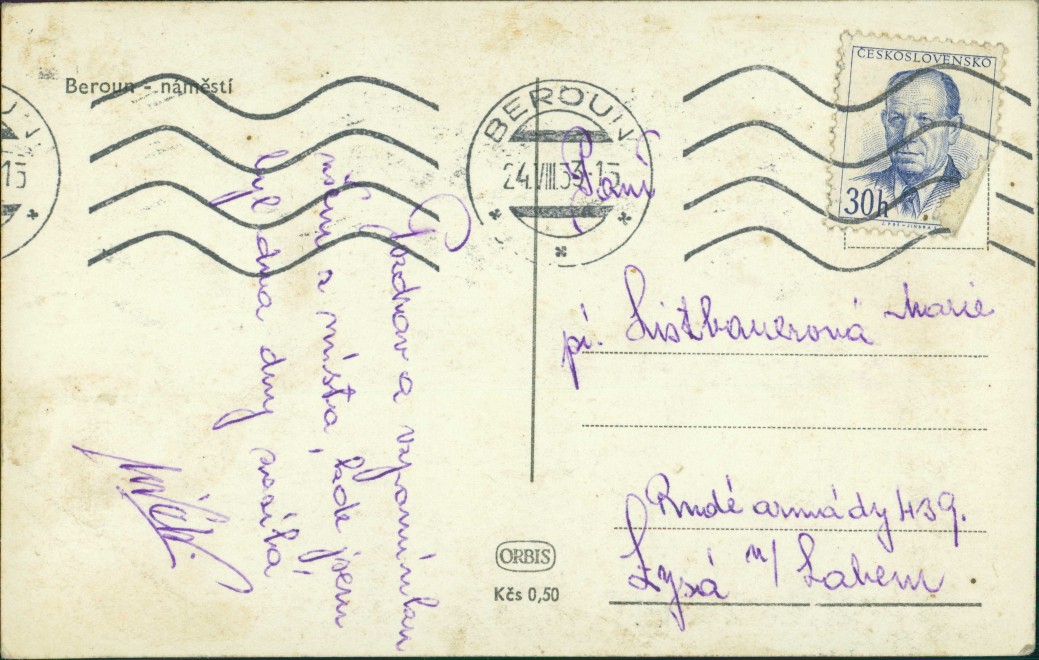 Beroun - náměstí
BEROUN
24.VIII.53-15
15
ČESKOSLOVENSKO
30h
Pozdrav a vzpomínku
všem z místa, kde jsem
byl dva dny
Paní
pí. Listbauerová Marie
Rudé armády 439.
Lysá n/ Labem
ORBIS
Kčs 0,50